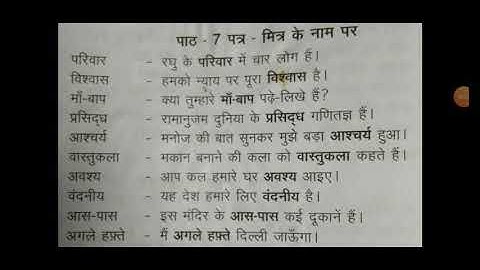 पाठ - 7 पत्र - मित्र के नाम पर
परिवार - रघु के परिवार में चार लोग हैं।
विश्वास - हमको न्याय पर पूरा विश्वास है।
माँ-बाप - क्या तुम्हारे माँ-बाप पढ़े-लिखे हैं?
प्रसिद्ध - रामानुजम दुनिया के प्रसिद्ध गणितज्ञ हैं।
आश्चर्य - मनोज की बात सुनकर मुझे बड़ा आश्चर्य हुआ।
वास्तुकला - मकान बनाने की कला को वास्तुकला कहते हैं।
अवश्य - आप कल हमारे घर अवश्य आइए।
वंदनीय - यह देश हमारे लिए वंदनीय है।
आस-पास - इस मंदिर के आस-पास कई दूकानें हैं।
अगले हफ़्ते - मैं अगले हफ़्ते दिल्ली जाऊँगा।